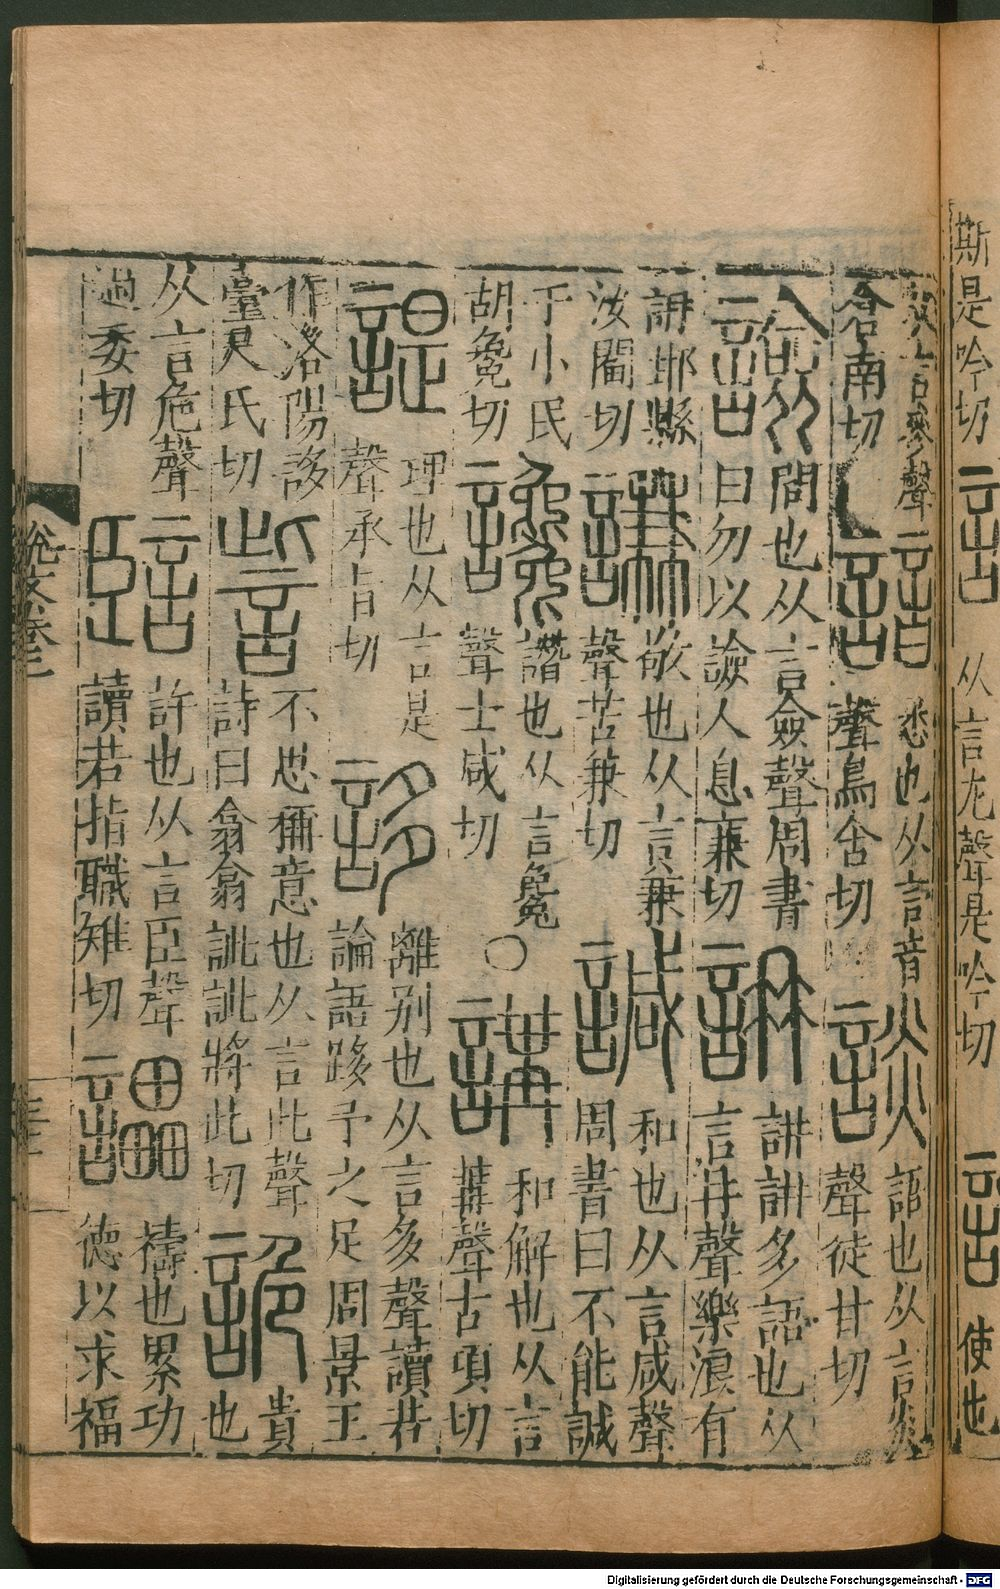 斯是吟切諶从言冘聲是吟切
使也
从言參聲諳悉也从言音談語也从言炎
倉南切聲烏含切聲徒甘切
譣問也从言僉聲周書䛁䛁䛁多語也从
曰勿以譣人息廉切言冄聲樂浪有
䛁邯縣謙敬也从言兼諴和也从言咸聲
汝閻切聲苦兼切周書曰不能諴
于小民讒譖也从言毚○講和解也从言
胡毚切聲士咸切冓聲古項切
諟理也从言是誃離別也从言多聲讀若
聲承旨切論語跢予之足周景王
作洛陽誃訾不思稱意也从言此聲詭責
臺尺氏切詩曰翕翕訿訿將此切也
从言危聲訐也从言臣聲讄禱也累功
過委切讀若指職雉切德以求福
說文卷三
Digitalisierung gefördert durch die Deutsche Forschungsgemeinschaft - DFG